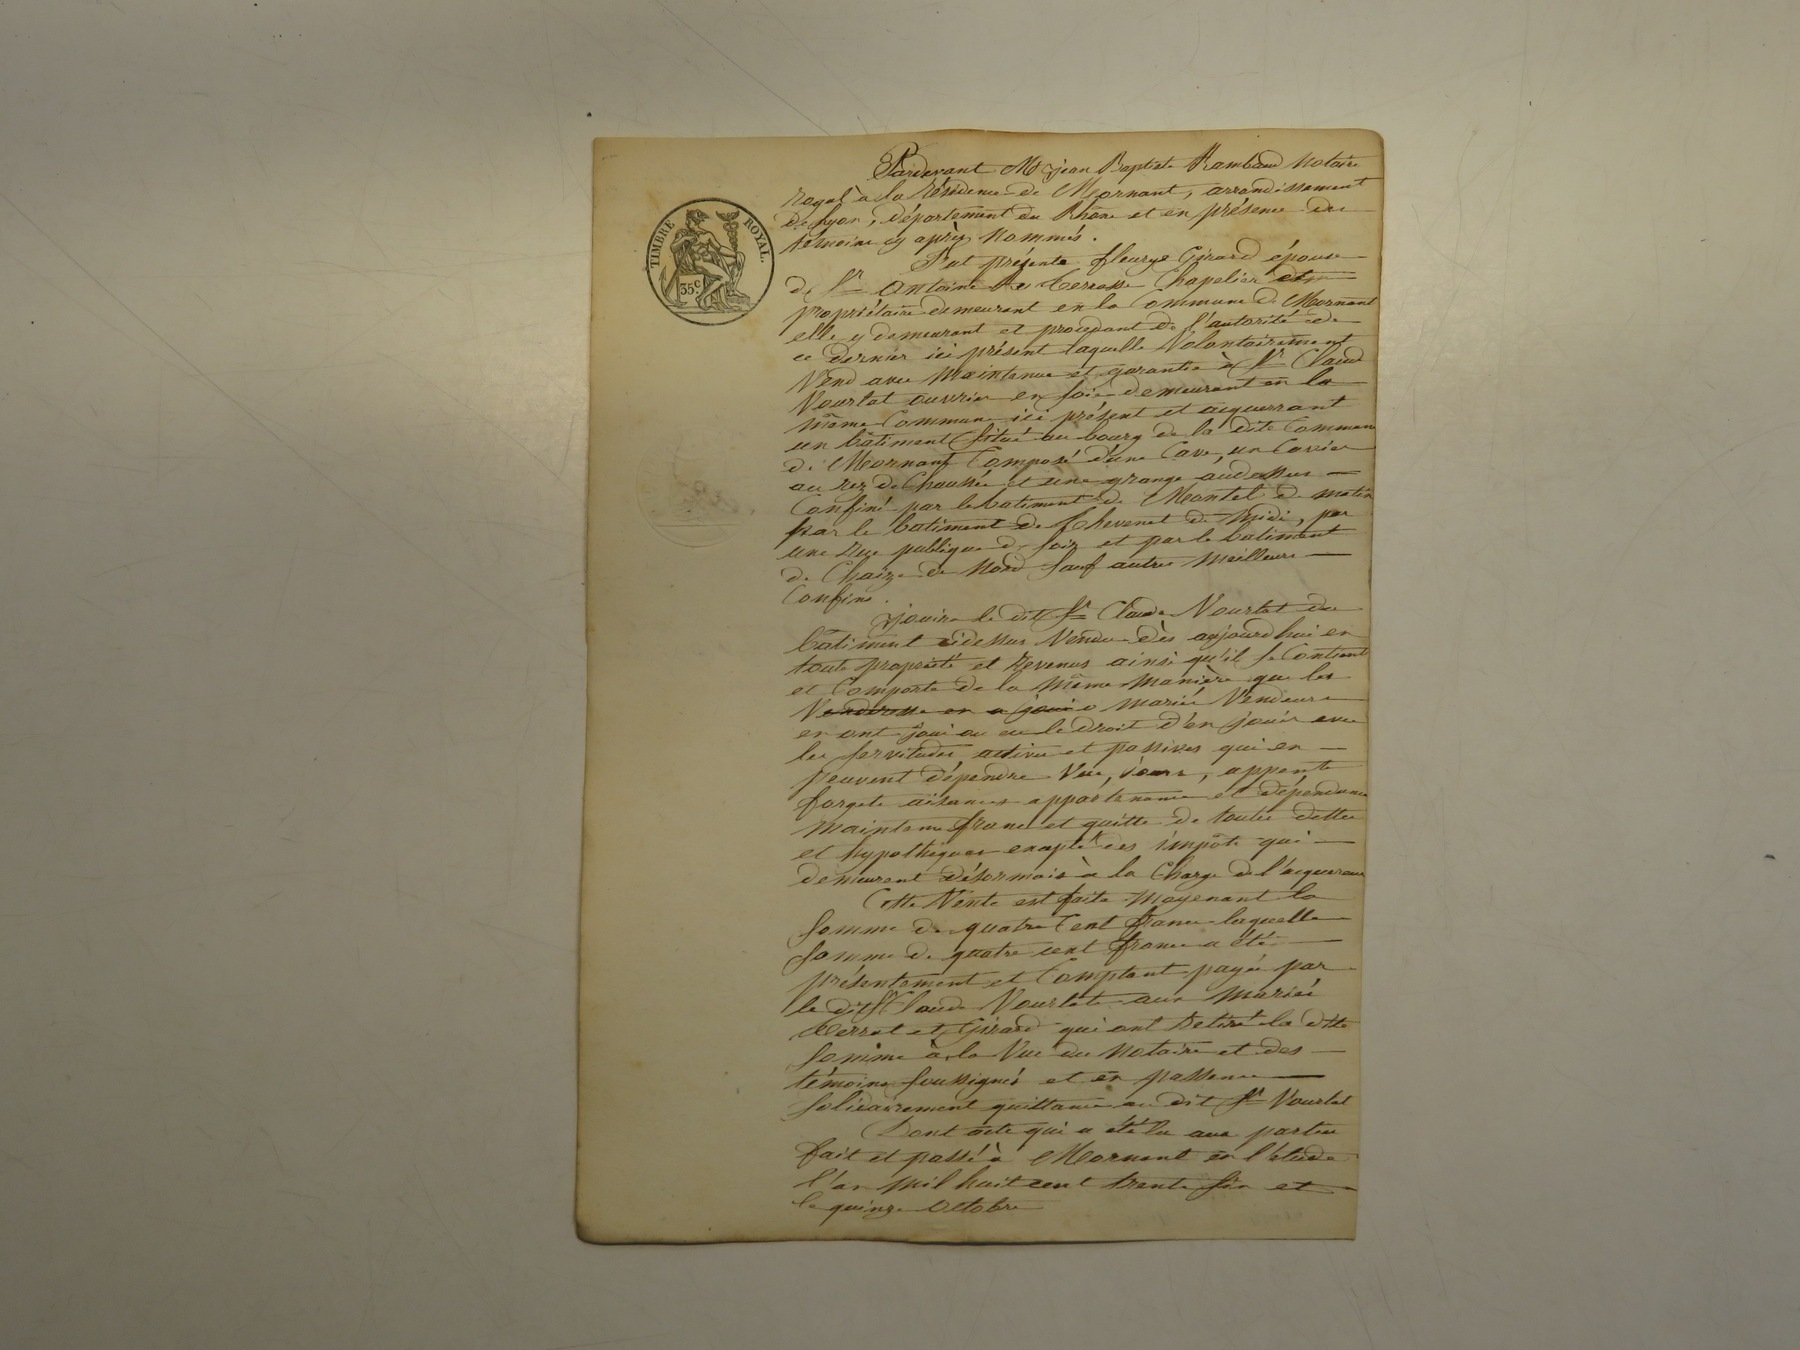 TIMBRE ROYAL.
35c.
Pardevant Me jean Baptiste Rambaud Notaire
royal à la résidence de Mornant, arrondissement
de Lyon, département du Rhône et en présence des
temoins cy après Nommés.
fut présente fleurye Girard épouse
de Sr Antoine Terrasse Chapelier et
propriétaire demeurant en la Commune de Mornant
elle y demeurant et procédant de l'autorité de
ce dernier ici présent laquelle Volontairement
Vend avec Maintenue et garantie à Sr Claude
Vourlat ouvrier en soie demeurant en la
même Commune ici présent et acquerrant
un bâtiment situé au bourg de la dite Commune
de Mornant Composé d'une Cave, un Cuvier
au rez de Chaussée et une grange audessus
Confiné par le batiment de Montel de matin
par le batiment de Thevenet de Midi, par
une Rue publique de soir et par le batiment
de Chaize de Nord sauf autres Meilleurs
Confins.
jouira le dit Sr Claude Vourlat du
bâtiment cidessus Vendu dès aujourdhui en
toute propriété et Revenus ainsi qu'il se Contient
et Comporte de la même Manière que les
Venderesse en a joui mariés Vendeurs
en ont joui ou eu le droit d'en jouir avec
les servitudes actives et passives qui en
peuvent dépendre Vue, jours, appents
forgets aisances appartenances et dépendances
maintenu franc et quitte de toutes dettes
et hypothèques excepté des impôts qui
demeurent désormais à la Charge de l'acquereur
Cette Vente est faite Moyenant la
Somme de quatre Cent francs laquelle
Somme de quatre cent francs a été
présentement et Comptant payée par
le dit Sr Claude Vourlat aux Mariés
et Girard qui ont Retiré la dite
Somme à la Vue du Notaire et des
témoins soussignés et en passent
solidairement quittance au dit Sr Vourlat
Dont acte qui a été lu aux parties
fait et passé à Mornant en l'étude
l'an Mil huit cent trente six et
le quinze Octobre